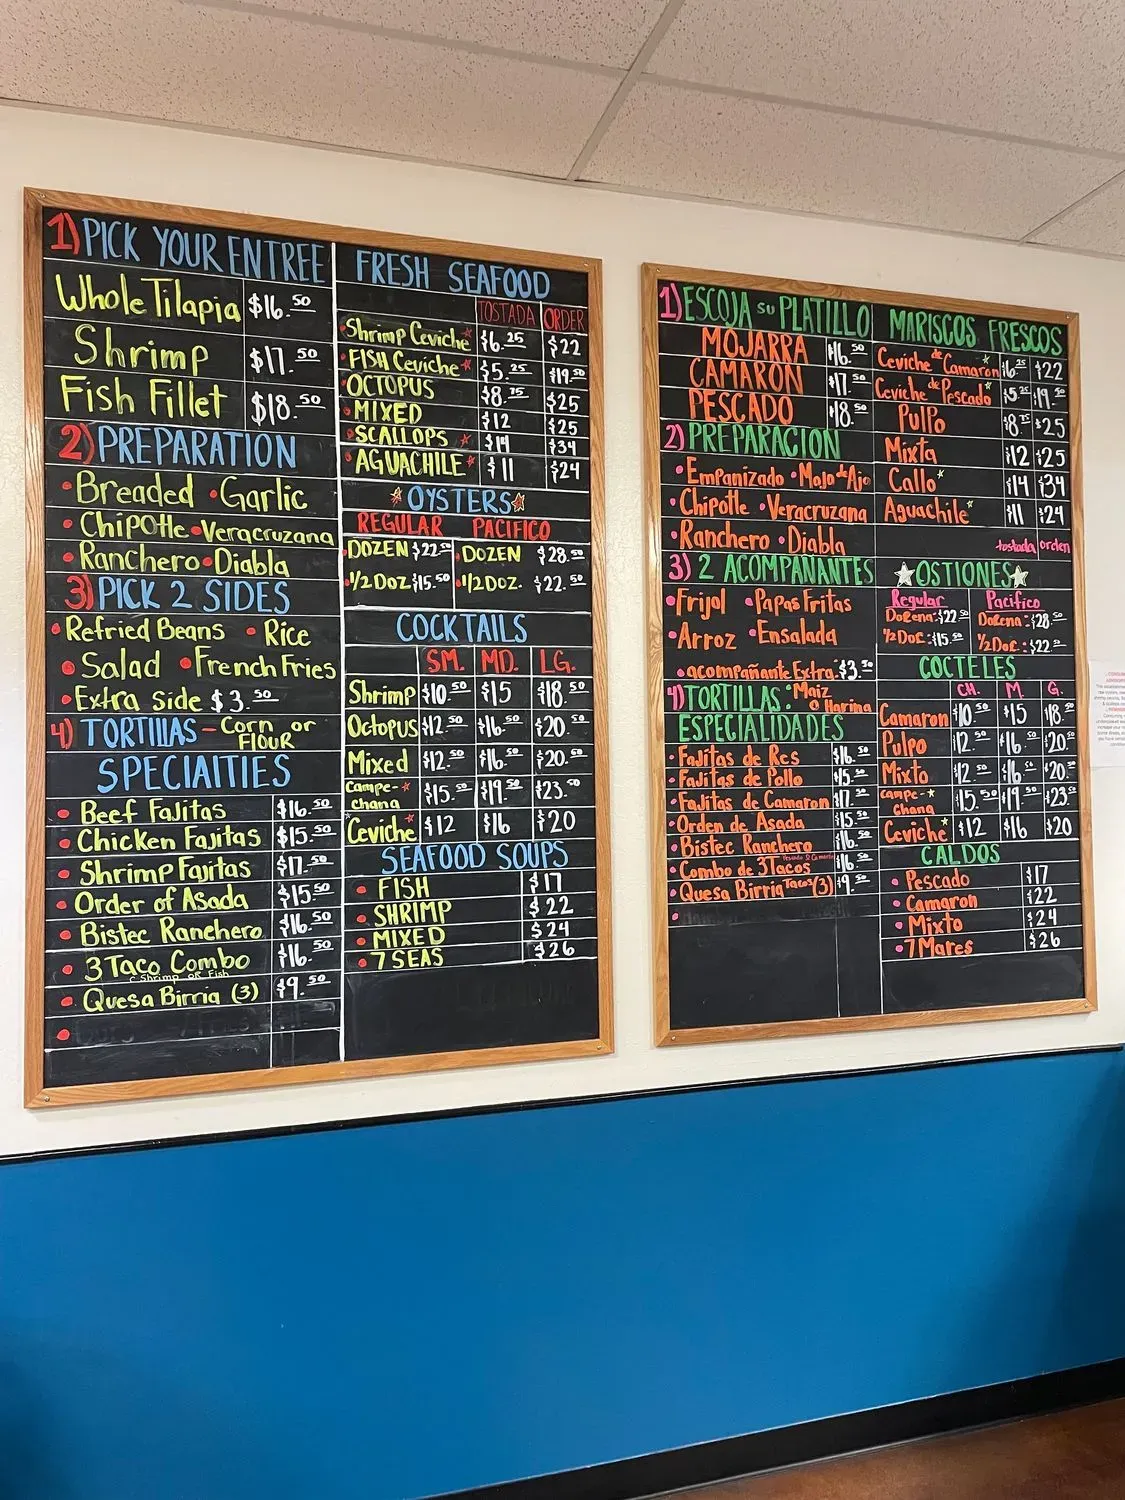 1) PICK YOUR ENTREE
Whole Tilapia $16.50
Shrimp $17.50
Fish Fillet $18.50
2) PREPARATION
• Breaded • Garlic
• Chipotle • Veracruzana
• Ranchero • Diabla
3) PICK 2 SIDES
• Refried Beans • Rice
• Salad • French Fries
• Extra Side $3.50
4) TORTILLAS - Corn or
Flour
SPECIALTIES
• Beef Fajitas $16.50
• Chicken Fajitas $15.50
• Shrimp Fajitas $17.50
• Order of Asada $15.50
• Bistec Ranchero $16.50
• 3 Taco Combo $16.50
Shrimp or Fish
• Quesa Birria (3) $9.50
FRESH SEAFOOD
TOSTADA ORDER
• Shrimp Ceviche $6.25 $22
• FISH Ceviche $5.25 $19.50
• OCTOPUS $8.75 $25
• MIXED $12 $25
• SCALLOPS $14 $34
• AGUACHILE $11 $24
OYSTERS
REGULAR PACIFICO
• DOZEN $22.50 • DOZEN $28.50
• 1/2 DOZ $15.50 • 1/2 DOZ. $22.50
COCKTAILS
SM. MD. LG.
Shrimp $10.50 $15 $18.50
Octopus $12.50 $16.50 $20.50
Mixed $12.50 $16.50 $20.50
Campe-
chana $15.50 $19.50 $23.50
Ceviche $12 $16 $20
SEAFOOD SOUPS
• FISH $17
• SHRIMP $22
• MIXED $24
• 7 SEAS $26
1) ESCOJA su PLATILLO
MOJARRA $16.50
CAMARON $17.50
PESCADO $18.50
2) PREPARACION
• Empanizado • Mojo de Ajo
• Chipotle • Veracruzana
• Ranchero • Diabla
3) 2 ACOMPAÑANTES
• Frijol • Papas Fritas
• Arroz • Ensalada
• acompañante Extra: $3.50
4) TORTILLAS. • Maiz
o Harina
ESPECIALIDADES
• Fajitas de Res $16.50
• Fajitas de Pollo $15.50
• Fajitas de Camaron $17.50
• Orden de Asada $15.50
• Bistec Ranchero $16.50
• Combo de 3 Tacos $16.50
• Quesa Birria Tacos (3) $9.50
MARISCOS FRESCOS
Ceviche de Camaron $6.25 $22
Ceviche de Pescado $5.25 $19.50
Pulpo $8.75 $25
Mixta $12 $25
Callo $14 $34
Aguachile $11 $24
tostada orden
OSTIONES
Regular Pacifico
Docena: $22.50 Docena: $28.50
1/2 Doc: $15.50 1/2 Doc: $22.50
COCTELES
CH. M. G.
Camaron $10.50 $15 $18.50
Pulpo $12.50 $16.50 $20.50
Mixto $12.50 $16.50 $20.50
campe-
chana $15.50 $19.50 $23.50
Ceviche $12 $16 $20
CALDOS
• Pescado $17
• Camaron $22
• Mixto $24
• 7 Mares $26